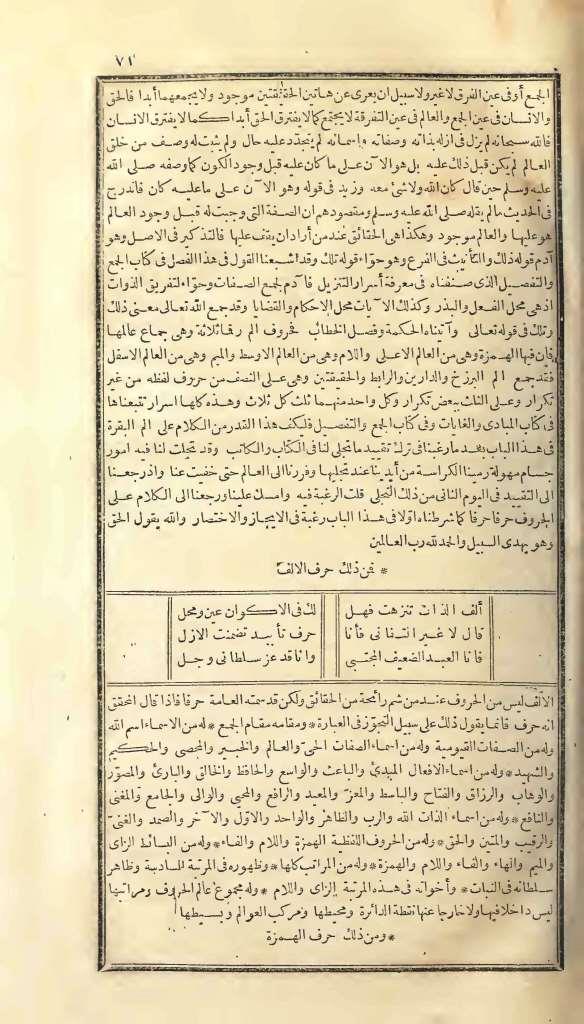 ٧١
الجمع أو فى عين الفرق لاغير ولا سبيل ان يعرى عن هاتين الحقيقتين موجود ولا يجمعهما أبدا فالحق
والانسان فى عين الجمع والعالم فى عين التفرقة لا يجتمع كما لا يفترق الحق أبدا كما لا يفترق الانسان
فالله سبحانه لم يزل فى أزله بذاته وصفاته وأسمائه لم يتجدد عليه حال ولم يثبت له وصف من خلق
العالم لم يكن قبل ذلك عليه بل هو الآن على ما كان عليه قبل وجود الكون كما وصفه صلى الله
عليه وسلم حين قال كان الله ولا شئ معه وزيد فى قوله وهو الآن على ما عليه كان فاندرج
فى الحديث ما لم يقله صلى الله عليه وسلم ومقصودهم ان الصفة التى وجبت له قبل وجود العالم
هو عليها والعالم موجود وهكذا هى الحقائق عند من أراد ان يقف عليها فالتذكير فى الاصل وهو
آدم قوله ذلك والتأنيث فى الفرع وهو حوّاء قوله تلك وقد اشبعنا القول فى هذا الفصل فى كتاب الجمع
والتفصيل الذى صنفناه فى معرفة أسرار التنزيل فا آدم لجمع الصفات وحوّاء لتفريق الذوات
اذ هى محل الفعل والبذر وكذلك الآيات محل الاحكام والقضايا وقد جمع الله تعالى معنى ذلك
وتلك فى قوله تعالى وآتيناه الحكمة وفصل الخطاب فحروف الم رقما ثلاثة وهى جماع عالمها
فإن فيها الهمزة وهى من العالم الاعلى واللام وهى من العالم الاوسط والميم وهى من العالم الاسفل
فقد جمع الم البرزخ والدارين والرابط والحقيقتين وهى على النصف من حروف لفظه من غير
تكرار وعلى الثلث بغير تكرار وكل واحد منهما ثلث كل ثلاث وهذه كلها أسرار تتبعناها
فى كتاب المبادى والغايات وفى كتاب الجمع والتفصيل فليكف هذا القدر من الكلام على الم البقرة
فى هذا الباب بعد ما رغبنا فى ترك تقييد ما تجلى لنا فى الكتاب والكاتب وقد تجلت لنا فيه أمور
جسام مهولة رمينا الكراسة من أيدينا عند تجليها وفررنا الى العالم حتى خفيت عنا واذ رجعنا
الى التقييد فى اليوم الثانى من ذلك التجلى قلت الرغبة فيه وامسك علينا ورجعنا الى الكلام على
الحروف حرفا حرفا كما شرطناه أولا فى هذا الباب رغبة فى الايجاز والاختصار والله يقول الحق
وهو يهدى السبيل والحمد لله رب العالمين
* فمن ذلك حرف الالف *
ألف الذات تنزهت فهل لك فى الاكوان عين ومحل
قال لا غير التفاتى فأنا حرف تأبيد تضمنت الازل
فأنا العبد الضعيف المجتبى وأنا قد عز سلطانى وجل
الالف ليس من الحروف عند من شم رائحة من الحقائق ولكن قد سمته العامة حرفا فاذا قال المحقق
انه حرف فانما يقول ذلك على سبيل التجوّز فى العبارة * ومقامه مقام الجمع * له من الاسماء اسم الله
وله من الصفات القيومية وله من اسماء الصفات الحىّ والعالم والخبير والمحصى والحكيم
والشهيد * وله من اسماء الافعال المبدئ والباعث والواسع والحافظ والخالق والبارئ والمصوّر
والوهاب والرزاق والفتاح والباسط والمعزّ والمعيد والرافع والمحيى والوالى والجامع والمغنى
والنافع * وله من اسماء الذات الله والرب والظاهر والواحد والاوّل والآخر والصمد والغنىّ
والرقيب والمتين والحق * وله من الحروف اللفظية الهمزة واللام والفاء * وله من البسائط الزاى
والميم والهاء والفاء واللام والهمزة * وله من المراتب كلها * وظهوره فى المرتبة السادسة وظاهر
سلطانه فى النبات * وأخواته فى هذه المرتبة الزاى واللام * وله مجموع عالم الحروف ومراتبها
ليس داخلا فيها ولا خارجا عنها نقطة الدائرة ومحيطها ومركب العوالم وبسيطها
* ومن ذلك حرف الهمزة